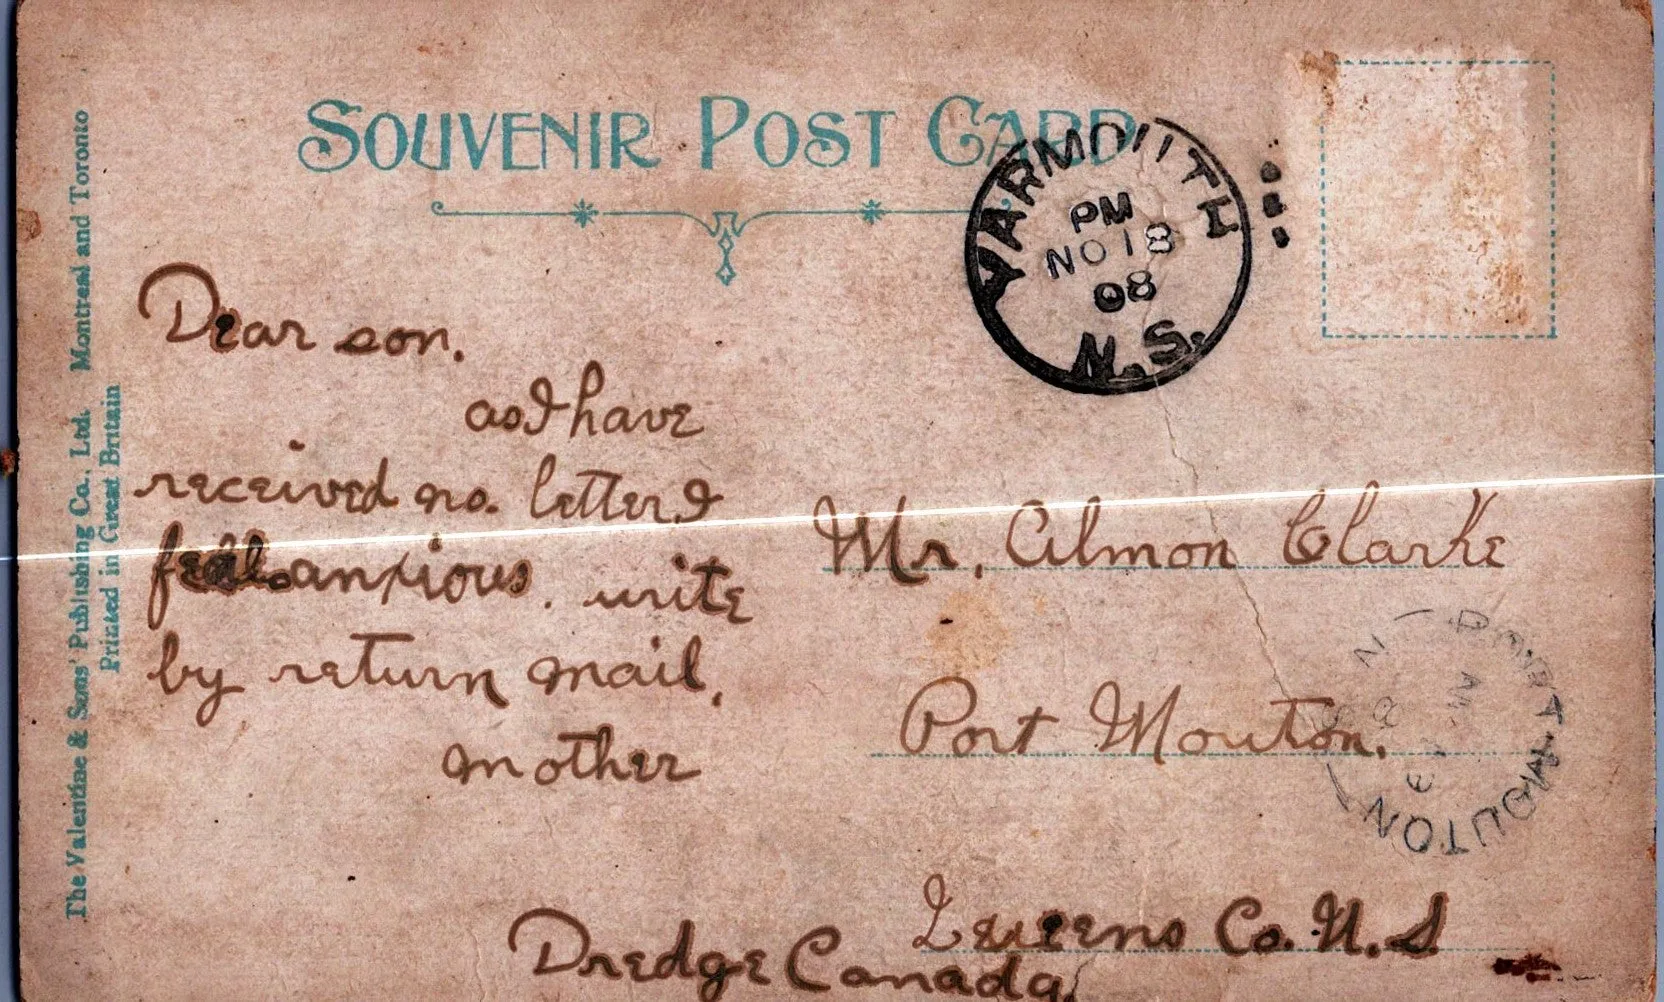 SOUVENIR POST CARD
YARMOUTH
PM
NO 18
08
N.S.
Dear son.
as I have
received no. letter I
feel anxious. write
by return mail,
mother
Mr. Almon Clarke
Port Mouton.
Queens Co. N.S
Dredge Canada.
PORT MOUTON
The Valentine & Sons' Publishing Co., Ltd. Montreal and Toronto
Printed in Great Britain